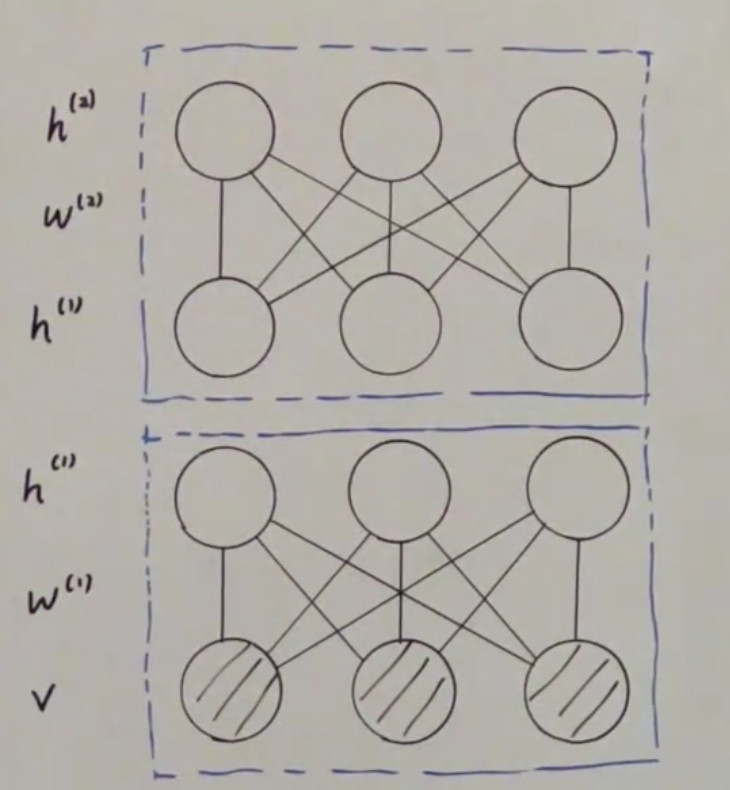 h⁽²⁾
w⁽²⁾
h⁽¹⁾
h⁽¹⁾
w⁽¹⁾
v